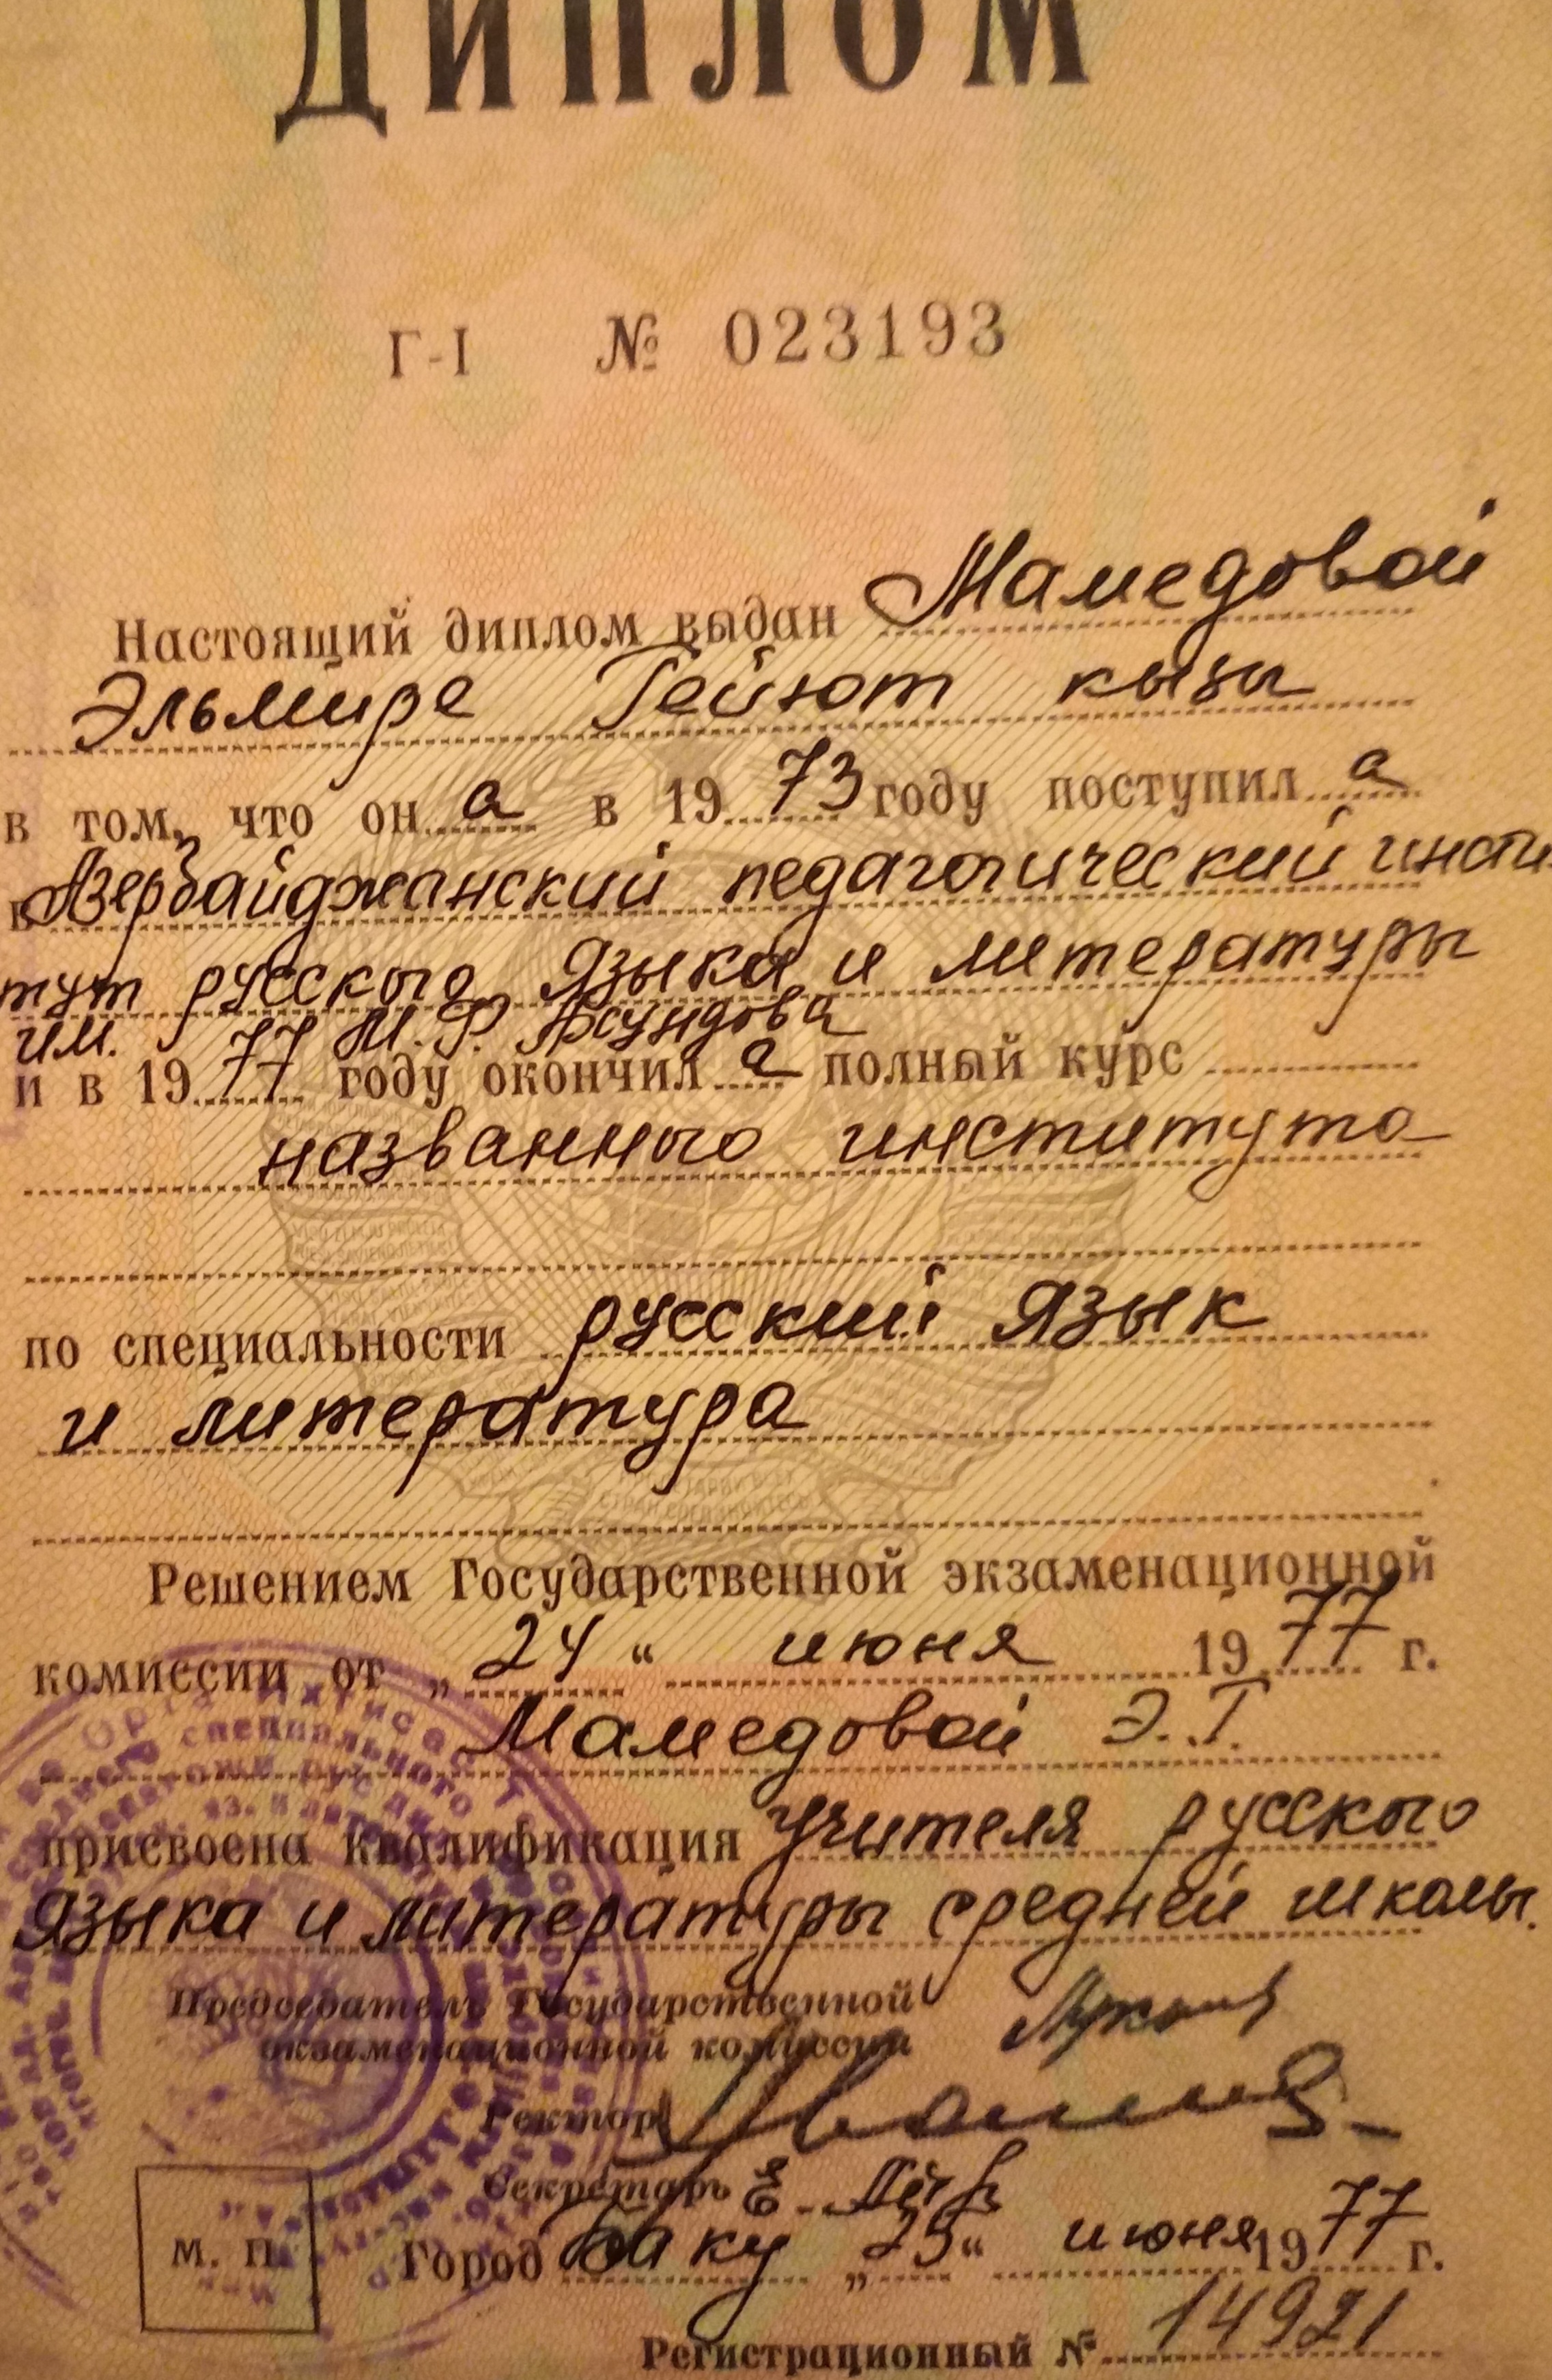 ДИПЛОМ
Г-I № 023193
Настоящий диплом выдан Мамедовой
Эльмире Гейют кызы
в том, что он а в 19 73 году поступил а
в Азербайджанский педагогический инсти
тут русского языка и литературы
им. М. Ф. Ахундова
и в 19 77 году окончил а полный курс
названного института
по специальности русский язык
и литература
Решением Государственной экзаменационной
комиссии от „ 24 “ июня 19 77 г.
Мамедовой Э. Г.
присвоена квалификация учителя русского
языка и литературы средней школы.
Председатель Государственной
экзаменационной комиссии
Ректор
Секретарь
Город Баку „ 25 “ июня 19 77 г.
М. П.
Регистрационный № 14921